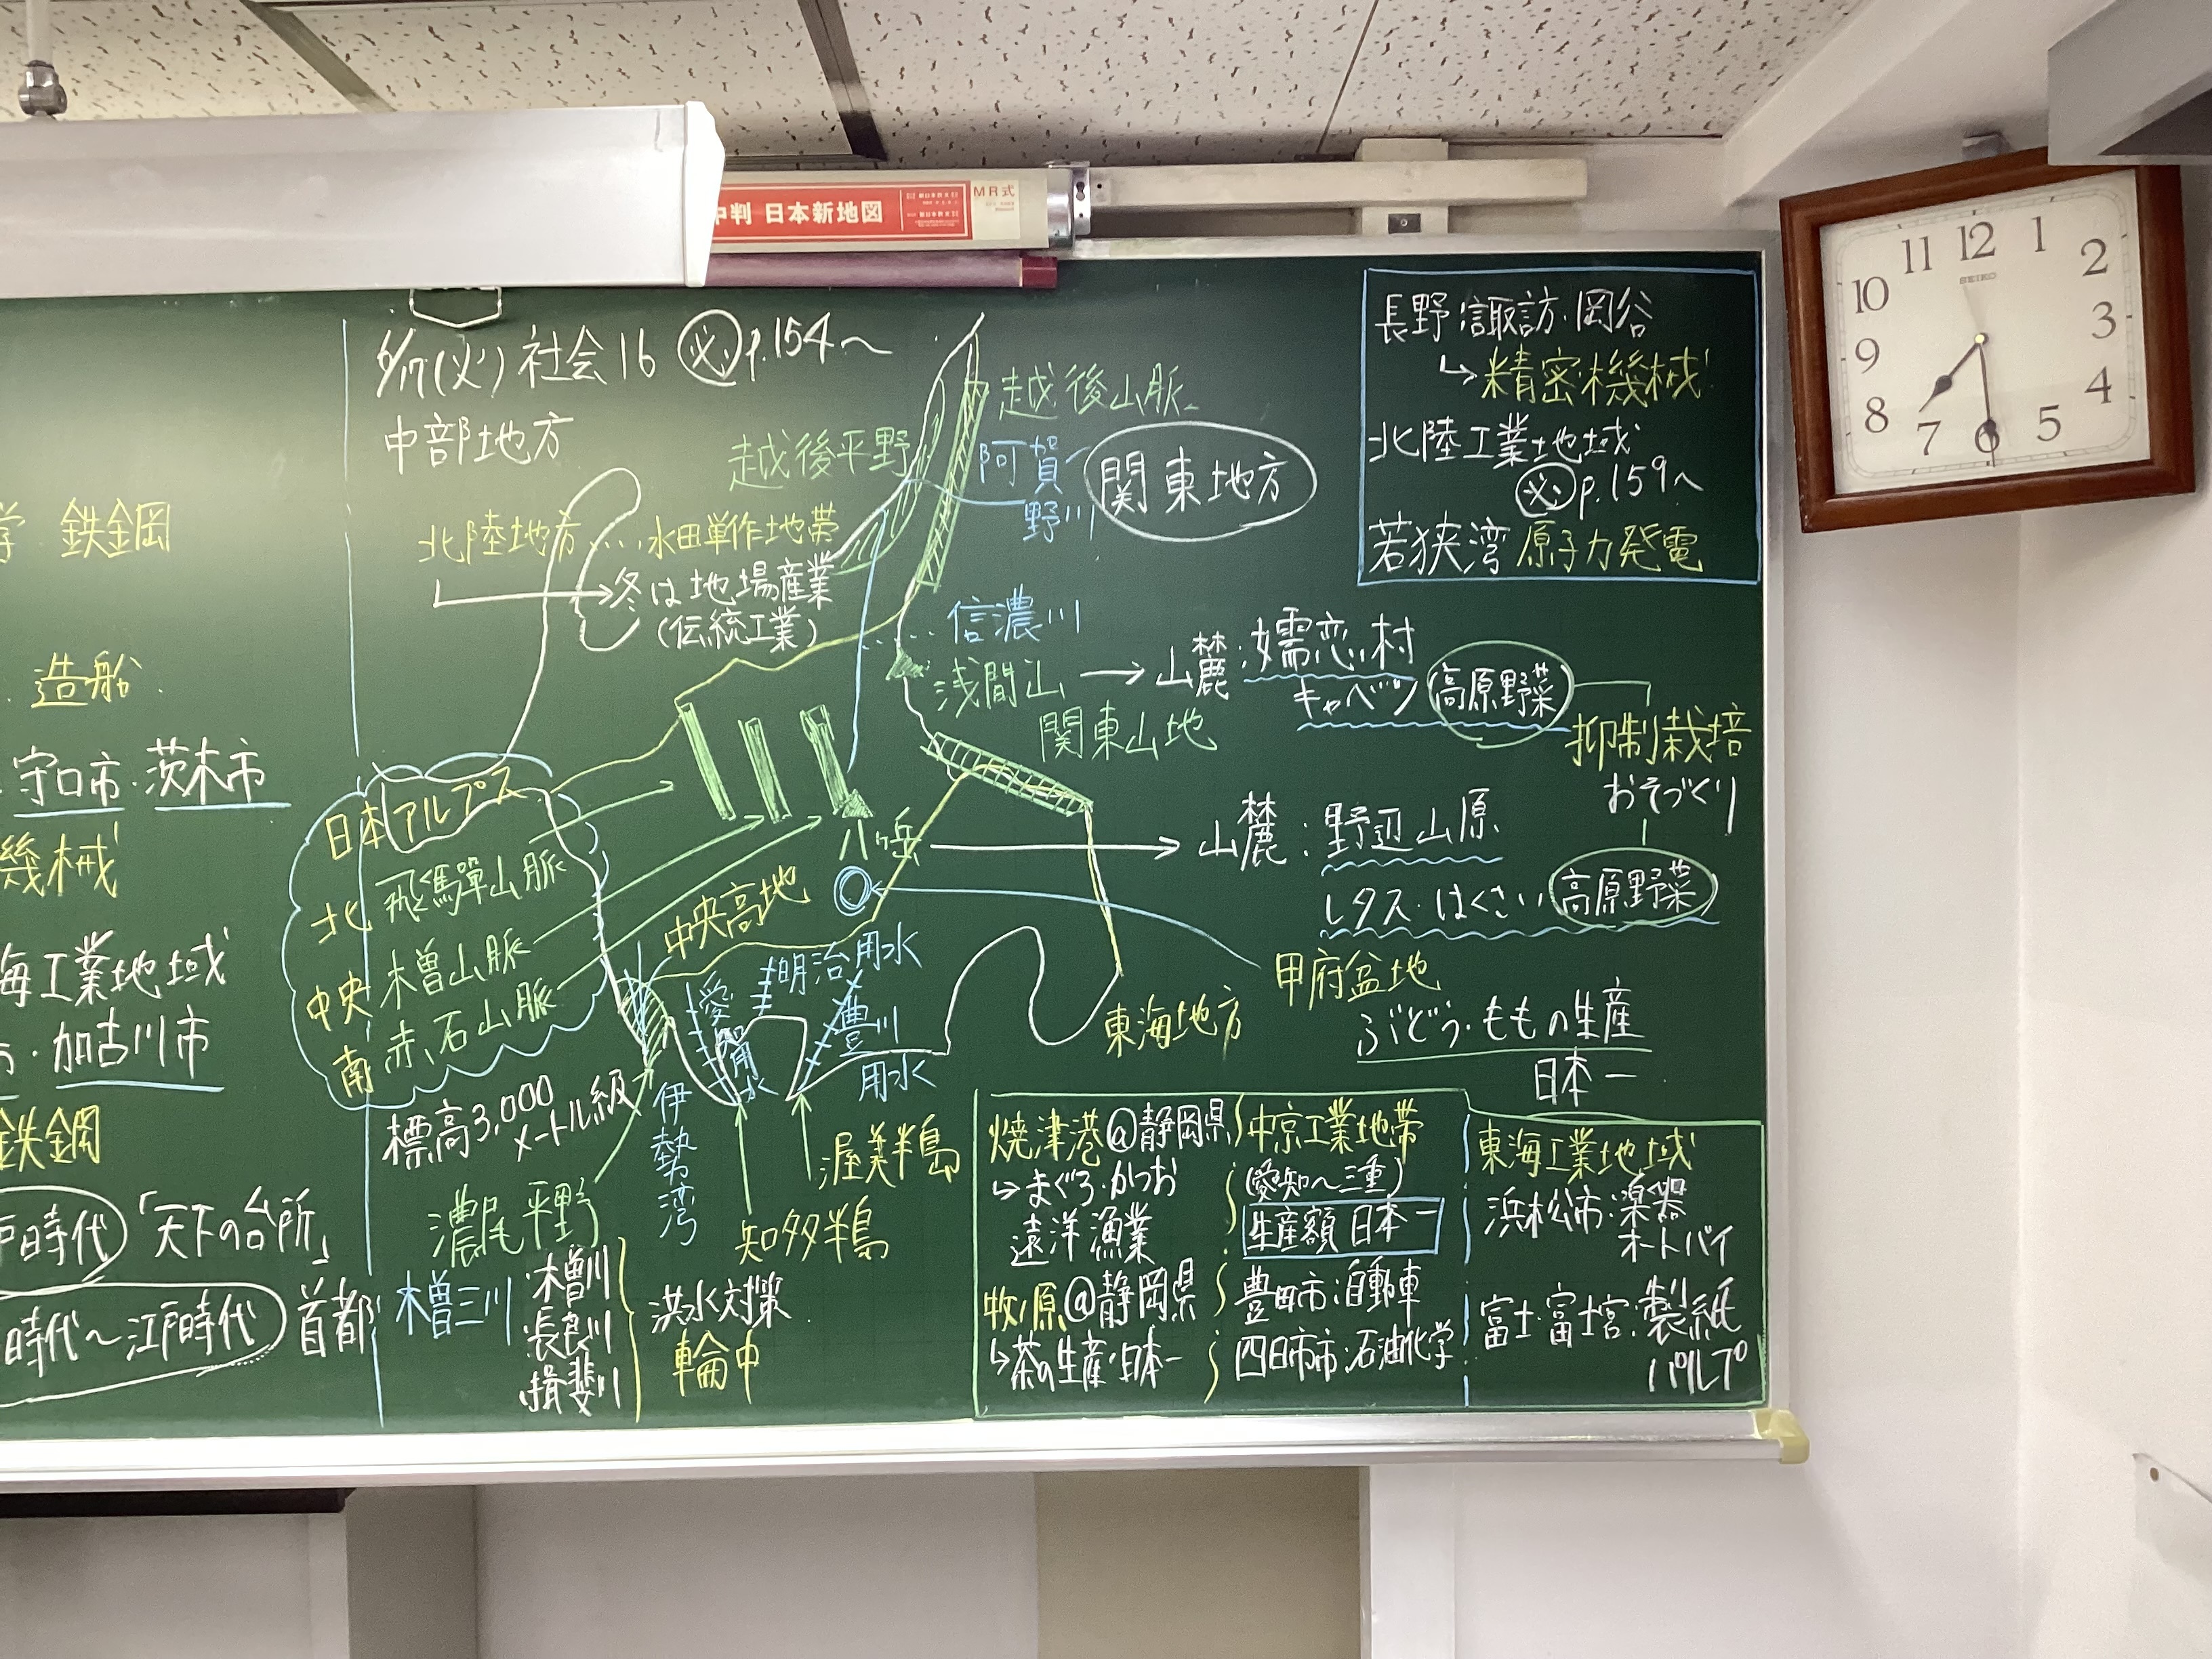 中判 日本新地図
MR式
12
1
2
3
4
5
6
7
8
9
10
11
SEIKO
鉄鋼
造船
守口市・茨木市
機械
海工業地域
加古川市
鉄鋼
戸時代「天下の台所」
時代〜江戸時代 首都
6/17(火) 社会16 必 p.154〜
中部地方
北陸地方……水田単作地帯
→冬は地場産業
(伝統工業)
越後平野
越後山脈
阿賀
野川
関東地方
信濃川
浅間山→山麓:嬬恋村
キャベツ 高原野菜
関東山地
抑制栽培
おそづくり
八ヶ岳→山麓:野辺山原
レタス・はくさい 高原野菜
日本アルプス
北 飛驒山脈
中央 木曽山脈
南 赤石山脈
標高3,000
メートル級
中央高地
甲府盆地
ぶどう・ももの生産
日本一
東海地方
明治用水
愛知用水
豊川
用水
伊勢湾
知多半島
渥美半島
濃尾平野
木曽三川
・木曽川
・長良川
・揖斐川
洪水対策
輪中
長野:諏訪・岡谷
↳精密機械
北陸工業地域
必 p.159〜
若狭湾 原子力発電
焼津港@静岡県
↳まぐろ・かつお
遠洋漁業
牧ノ原@静岡県
↳茶の生産・日本一
中京工業地帯
(愛知〜三重)
生産額 日本一
豊田市:自動車
四日市市:石油化学
東海工業地域
浜松市:楽器
オートバイ
富士・富士宮:製紙
パルプ